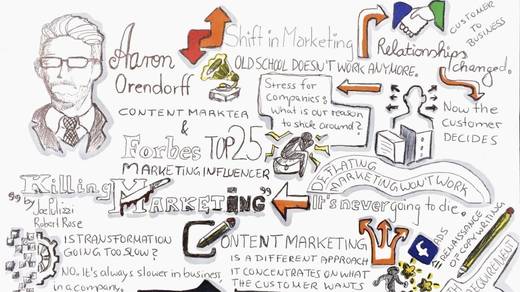 Aaron
Orendorff
CONTENT MARKTER
&
Forbes TOP 25
MARKETING INFLUENCER
Shift in Marketing
OLD SCHOOL DOESN'T WORK ANYMORE.
Stress for
companies:
what is our reason
to stick around?
Relationships
changed.
CUSTOMER
TO
BUSINESS
Now the
customer
DECIDES
DEFLATING
MARKETING WON'T WORK
Killing
MARKETING"
"by
Joe Pulizzi
Robert Rose
It's never going to die.
IS TRANSFORMATION
GOING TOO SLOW?
NO. IT'S always slower in business
in a company.
CONTENT MARKETING
IS A DIFFERENT APPROACH
IT CONCENTRATES ON WHAT
THE CUSTOMER WANTS
f ADS
RENAISSANCE
OF COPYWRITING